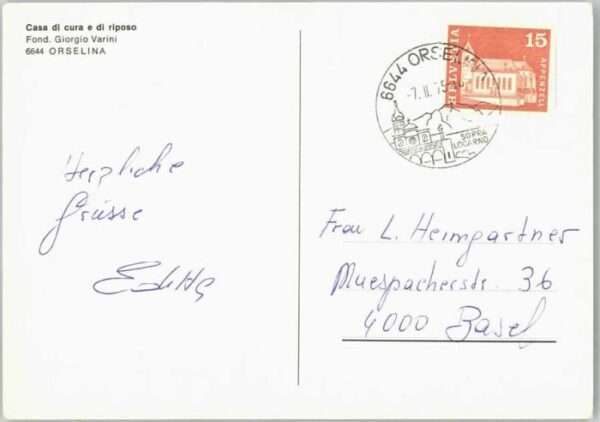 Casa di cura e di riposo
Fond. Giorgio Varini
6644 ORSELINA
Herzliche
Grüsse
Edith
6644 ORSELINA
-7.II.75
SOPRA
LOCARNO
HELVETIA
15
APPENZELL
Frau L. Heimgartner
Muespacherstr. 36
4000 Basel